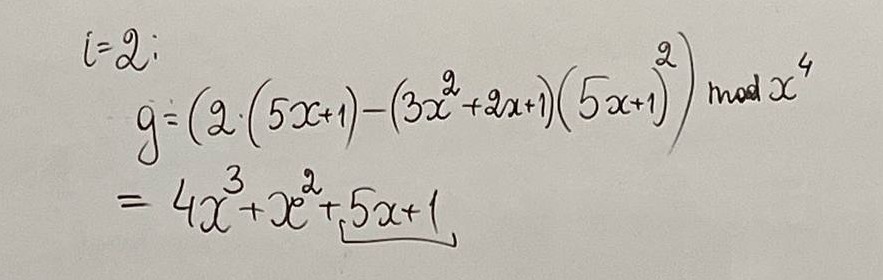 i=2;
g=(2·(5x+1)-(3x²+2x+1)(5x+1)²) mod x⁴
= 4x³+x²+5x+1